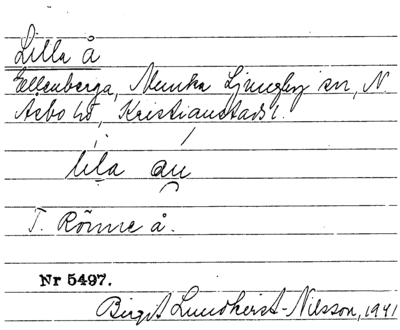 Lilla å
Ellenberga, Munka Ljungby sn, N.
Åsbo hd, Kristianstads l.
lila au
T. Rönne å.
Nr 5497.
Birgit Lundkvist-Nilsson, 1941